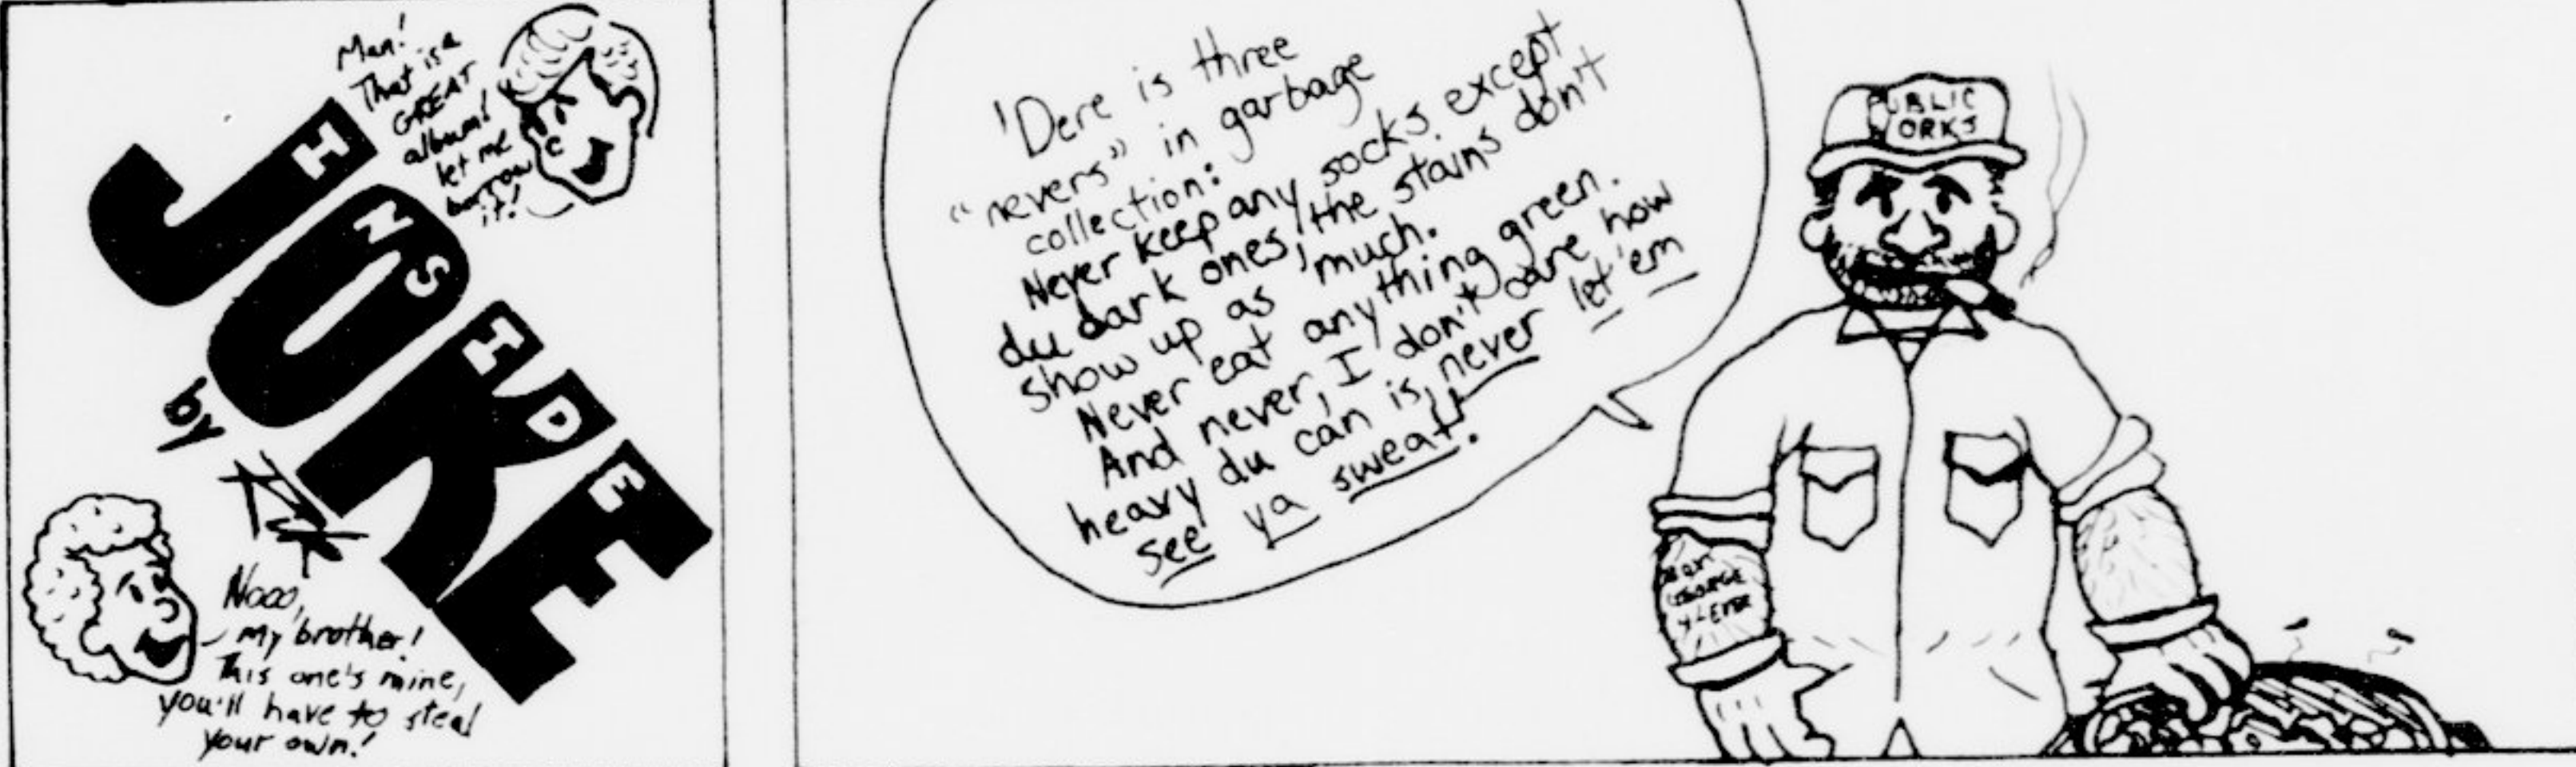 Man!
That is a
GREAT
album!
let me
borrow
it!
JOKE
INSIDE
by
Nooo,
my brother!
This one's mine,
you'll have to steal
your own!
'Dere is three
"nevers" in garbage
collection:
Never keep any socks except
du dark ones, the stains don't
show up as much.
Never eat anything green.
And never, I don't care how
heavy du can is, never let 'em
see ya sweat.
PUBLIC
ORKS
GEORGE